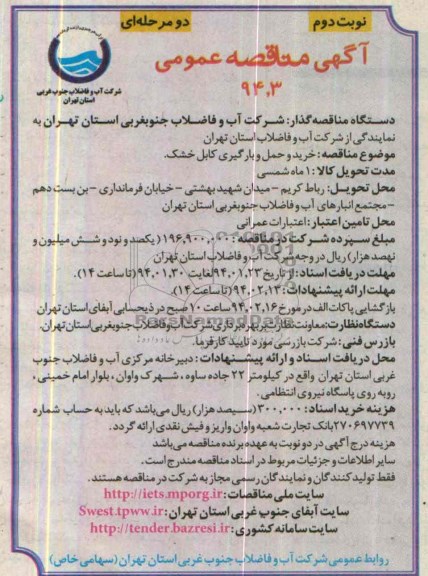 نوبت دوم
دو مرحله‌ای
آگهی مناقصه عمومی
۹۴,۳
شرکت آب و فاضلاب جنوب غربی
استان تهران
دستگاه مناقصه گذار: شرکت آب و فاضلاب جنوبغربی استان تهران به
نمایندگی از شرکت آب و فاضلاب استان تهران
موضوع مناقصه: خرید و حمل و بارگیری کابل خشک.
مدت تحویل کالا: ۱ ماه شمسی
محل تحویل: رباط کریم - میدان شهید بهشتی - خیابان فرمانداری - بن بست دهم
- مجتمع انبارهای آب و فاضلاب جنوبغربی استان تهران
محل تامین اعتبار: اعتبارات عمرانی
مبلغ سپرده شرکت در مناقصه: ۱۹۶,۹۰۰,۰۰۰ (یکصد و نود و شش میلیون و
نهصد هزار) ریال در وجه شرکت آب و فاضلاب استان تهران
مهلت دریافت اسناد: از تاریخ ۹۴,۰۱,۲۳ لغایت ۹۴,۰۱,۳۰ (تا ساعت ۱۴).
مهلت ارائه پیشنهادات: ۹۴,۰۲,۱۳ (تا ساعت ۱۴).
بازگشایی پاکات الف در مورخ ۹۴,۰۲,۱۶ ساعت ۱۰ صبح در ذیحسابی آبفای استان تهران
دستگاه نظارت: معاونت نظارت بر بهره برداری شرکت آب و فاضلاب جنوبغربی استان تهران.
بازرس فنی: شرکت بازرسی مورد تایید کارفرما.
محل دریافت اسناد و ارائه پیشنهادات: دبیرخانه مرکزی آب و فاضلاب جنوب
غربی استان تهران واقع در کیلومتر ۲۲ جاده ساوه، شهرک واوان، بلوار امام خمینی،
روبه روی پاسگاه نیروی انتظامی.
هزینه خرید اسناد: ۳۰۰,۰۰۰ (سیصد هزار) ریال می‌باشد که باید به حساب شماره
۲۷۰۶۹۷۷۳۹ بانک تجارت شعبه واوان واریز و فیش نقدی ارائه گردد.
هزینه درج آگهی در دو نوبت به عهده برنده مناقصه می‌باشد
سایر اطلاعات و جزئیات مربوط در اسناد مناقصه مندرج است.
فقط تولید کنندگان و نمایندگان رسمی مجاز به شرکت در مناقصه هستند.
سایت ملی مناقصات: http://iets.mporg.ir
سایت آبفای جنوب غربی استان تهران: Swest.tpww.ir
سایت سامانه کشوری: http://tender.bazresi.ir
روابط عمومی شرکت آب و فاضلاب جنوب غربی استان تهران (سهامی خاص)